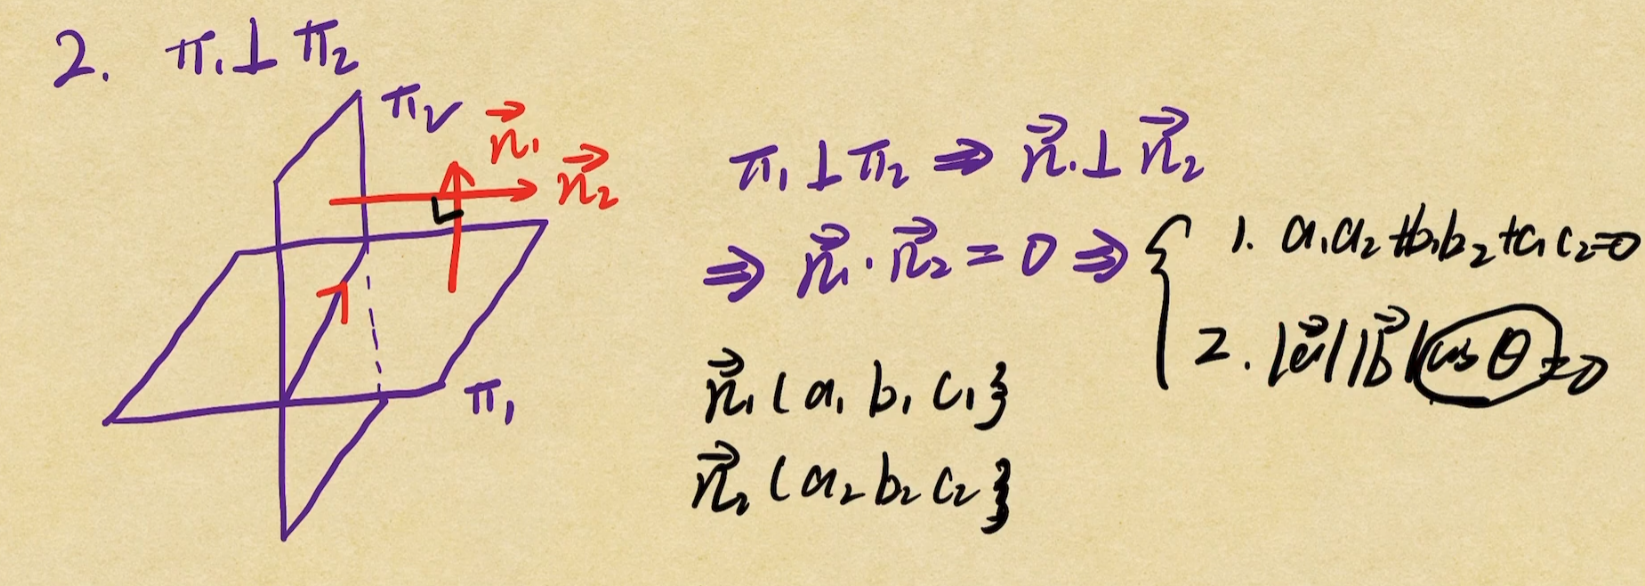 2. π₁⊥π₂
π₂
n⃗₁
n⃗₂
π₁
π₁⊥π₂ ⇒ n⃗₁⊥n⃗₂
⇒ n⃗₁·n⃗₂=0 ⇒ {
1. a₁a₂+b₁b₂+c₁c₂=0
2. |a⃗||b⃗|cosθ=0
n⃗₁{a₁ b₁ c₁}
n⃗₂{a₂ b₂ c₂}